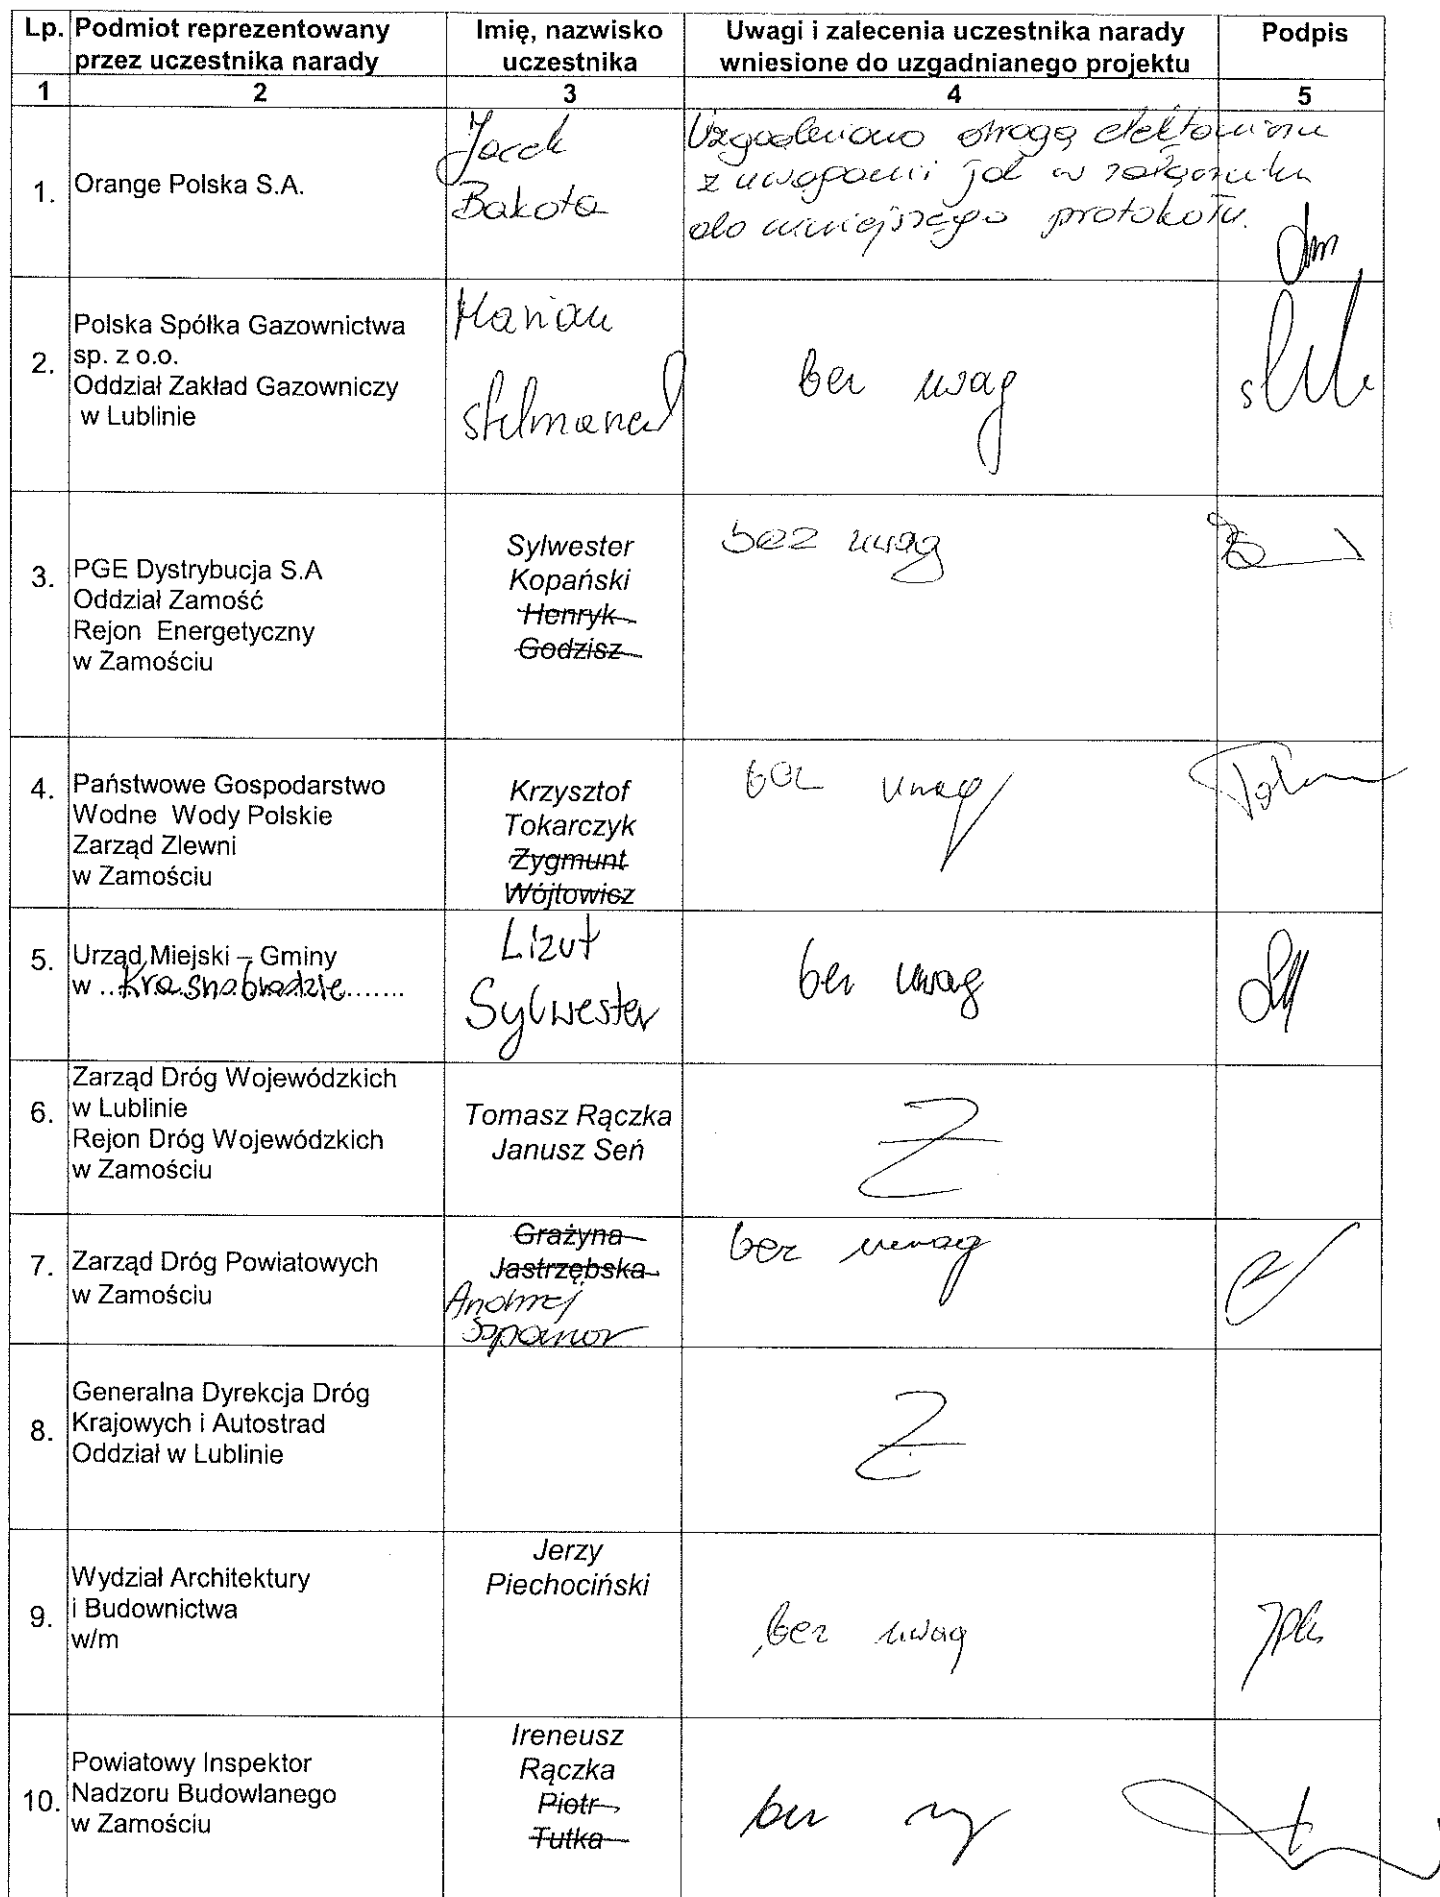 Lp. Podmiot reprezentowany przez uczestnika narady
Imię, nazwisko uczestnika
Uwagi i zalecenia uczestnika narady wniesione do uzgadnianego projektu
Podpis
1 2 3 4 5
1. Orange Polska S.A.
Jacek
Bakota
Uzgodniono drogą elektroniczną
z uwagami jak w załączniku
do niniejszego protokołu.
2. Polska Spółka Gazownictwa
sp. z o.o.
Oddział Zakład Gazowniczy
w Lublinie
Marian
bez uwag
3. PGE Dystrybucja S.A
Oddział Zamość
Rejon Energetyczny
w Zamościu
Sylwester
Kopański
Henryk
Godzisz
bez uwag
4. Państwowe Gospodarstwo
Wodne Wody Polskie
Zarząd Zlewni
w Zamościu
Krzysztof
Tokarczyk
Zygmunt
Wójtowisz
bez uwag
5. Urząd Miejski – Gminy
w ...Krasnobrodzie.......
Lizut
Sylwester
bez uwag
6. Zarząd Dróg Wojewódzkich
w Lublinie
Rejon Dróg Wojewódzkich
w Zamościu
Tomasz Rączka
Janusz Seń
7. Zarząd Dróg Powiatowych
w Zamościu
Grażyna
Jastrzębska
Andrzej
bez uwag
8. Generalna Dyrekcja Dróg
Krajowych i Autostrad
Oddział w Lublinie
9. Wydział Architektury
i Budownictwa
w/m
Jerzy
Piechociński
bez uwag
10. Powiatowy Inspektor
Nadzoru Budowlanego
w Zamościu
Ireneusz
Rączka
Piotr
Tutka
bez